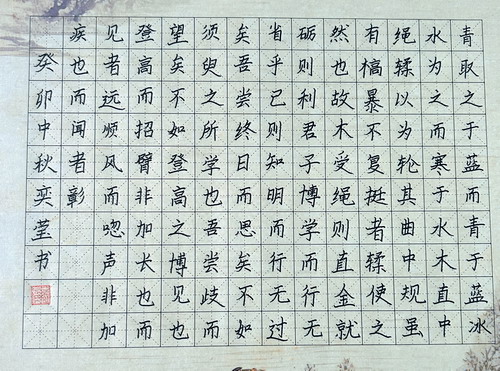 青取之于蓝而青于蓝冰
水为之而寒于水木直中
绳𫐓以为轮其曲中规虽
有槁暴不复挺者𫐓使之
然也故木受绳则直金就
砺则利君子博学而行无
省乎已则知明而行无过
矣吾尝终日而思矣不如
须臾之所学也吾尝歧而
望矣不如登高之博见也
登高而招臂非加长也而
见者远顺风而唿声非加
疾也而闻者彰
癸卯中秋奕莹书